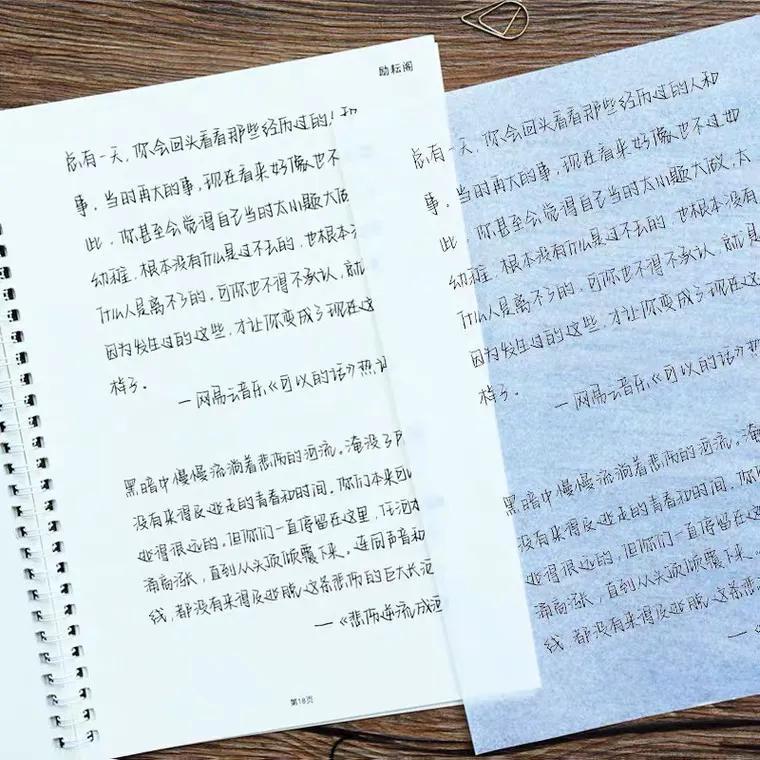 励耘阁
总有一天,你会回头看看那些经历过的人和
事,当时再大的事,现在看来好像也不
此,你甚至会觉得自己当时太小题大做,
幼稚,根本没有什么是过不去的,也根本没
什么人是离不了的,可你也不得不承认,就
因为发生过的这些,才让你变成了现在这
样了。
—网易云音乐《可以的话》热评
黑暗中慢慢流淌着悲伤的河流。淹没了
没有来得及逃走的青春和时间。你们本来可以
逃得很远的。但你们一直停留在这里,任河水
涌高涨,直到从头顶倾覆下来。连同声音和
线,都没有来得及逃脱这条悲伤的巨大长河
—《悲伤逆流成河
第18页
总有一天,你会回头看看那些经历过的人和
事,当时再大的事,现在看来好像也不过如
此,你甚至会觉得自己当时太小题大做,太
幼稚,根本没有什么是过不去的,也根本没有
什么人是离不了的,可你也不得不承认,就是
因为发生过的这些,才让你变成了现在这
样了。
—网易云音乐《可以的话》热
黑暗中慢慢流淌着悲伤的河流。淹
没有来得及逃走的青春和时间,你们
逃得很远的,但你们一直停留在这
涌高涨,直到从头顶倾覆下来。连
线,都没有来得及逃脱,这条悲
—《